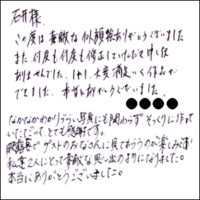 石井様
この度は素敵な似顔絵ありがとうございました
また何度も何度も修正していただき申し訳
ありませんでした。大変満足いく作品が
でき 本当にありがとうございました。
なかなかわかりづらい写真にも関わらず そっくりに作って
いただいて、とても感謝です。
披露宴で ゲストのみなさんに見てもらうのが楽しみ!
私達2人にとって素敵な思い出の1つになりました。
本当にありがとうございました。